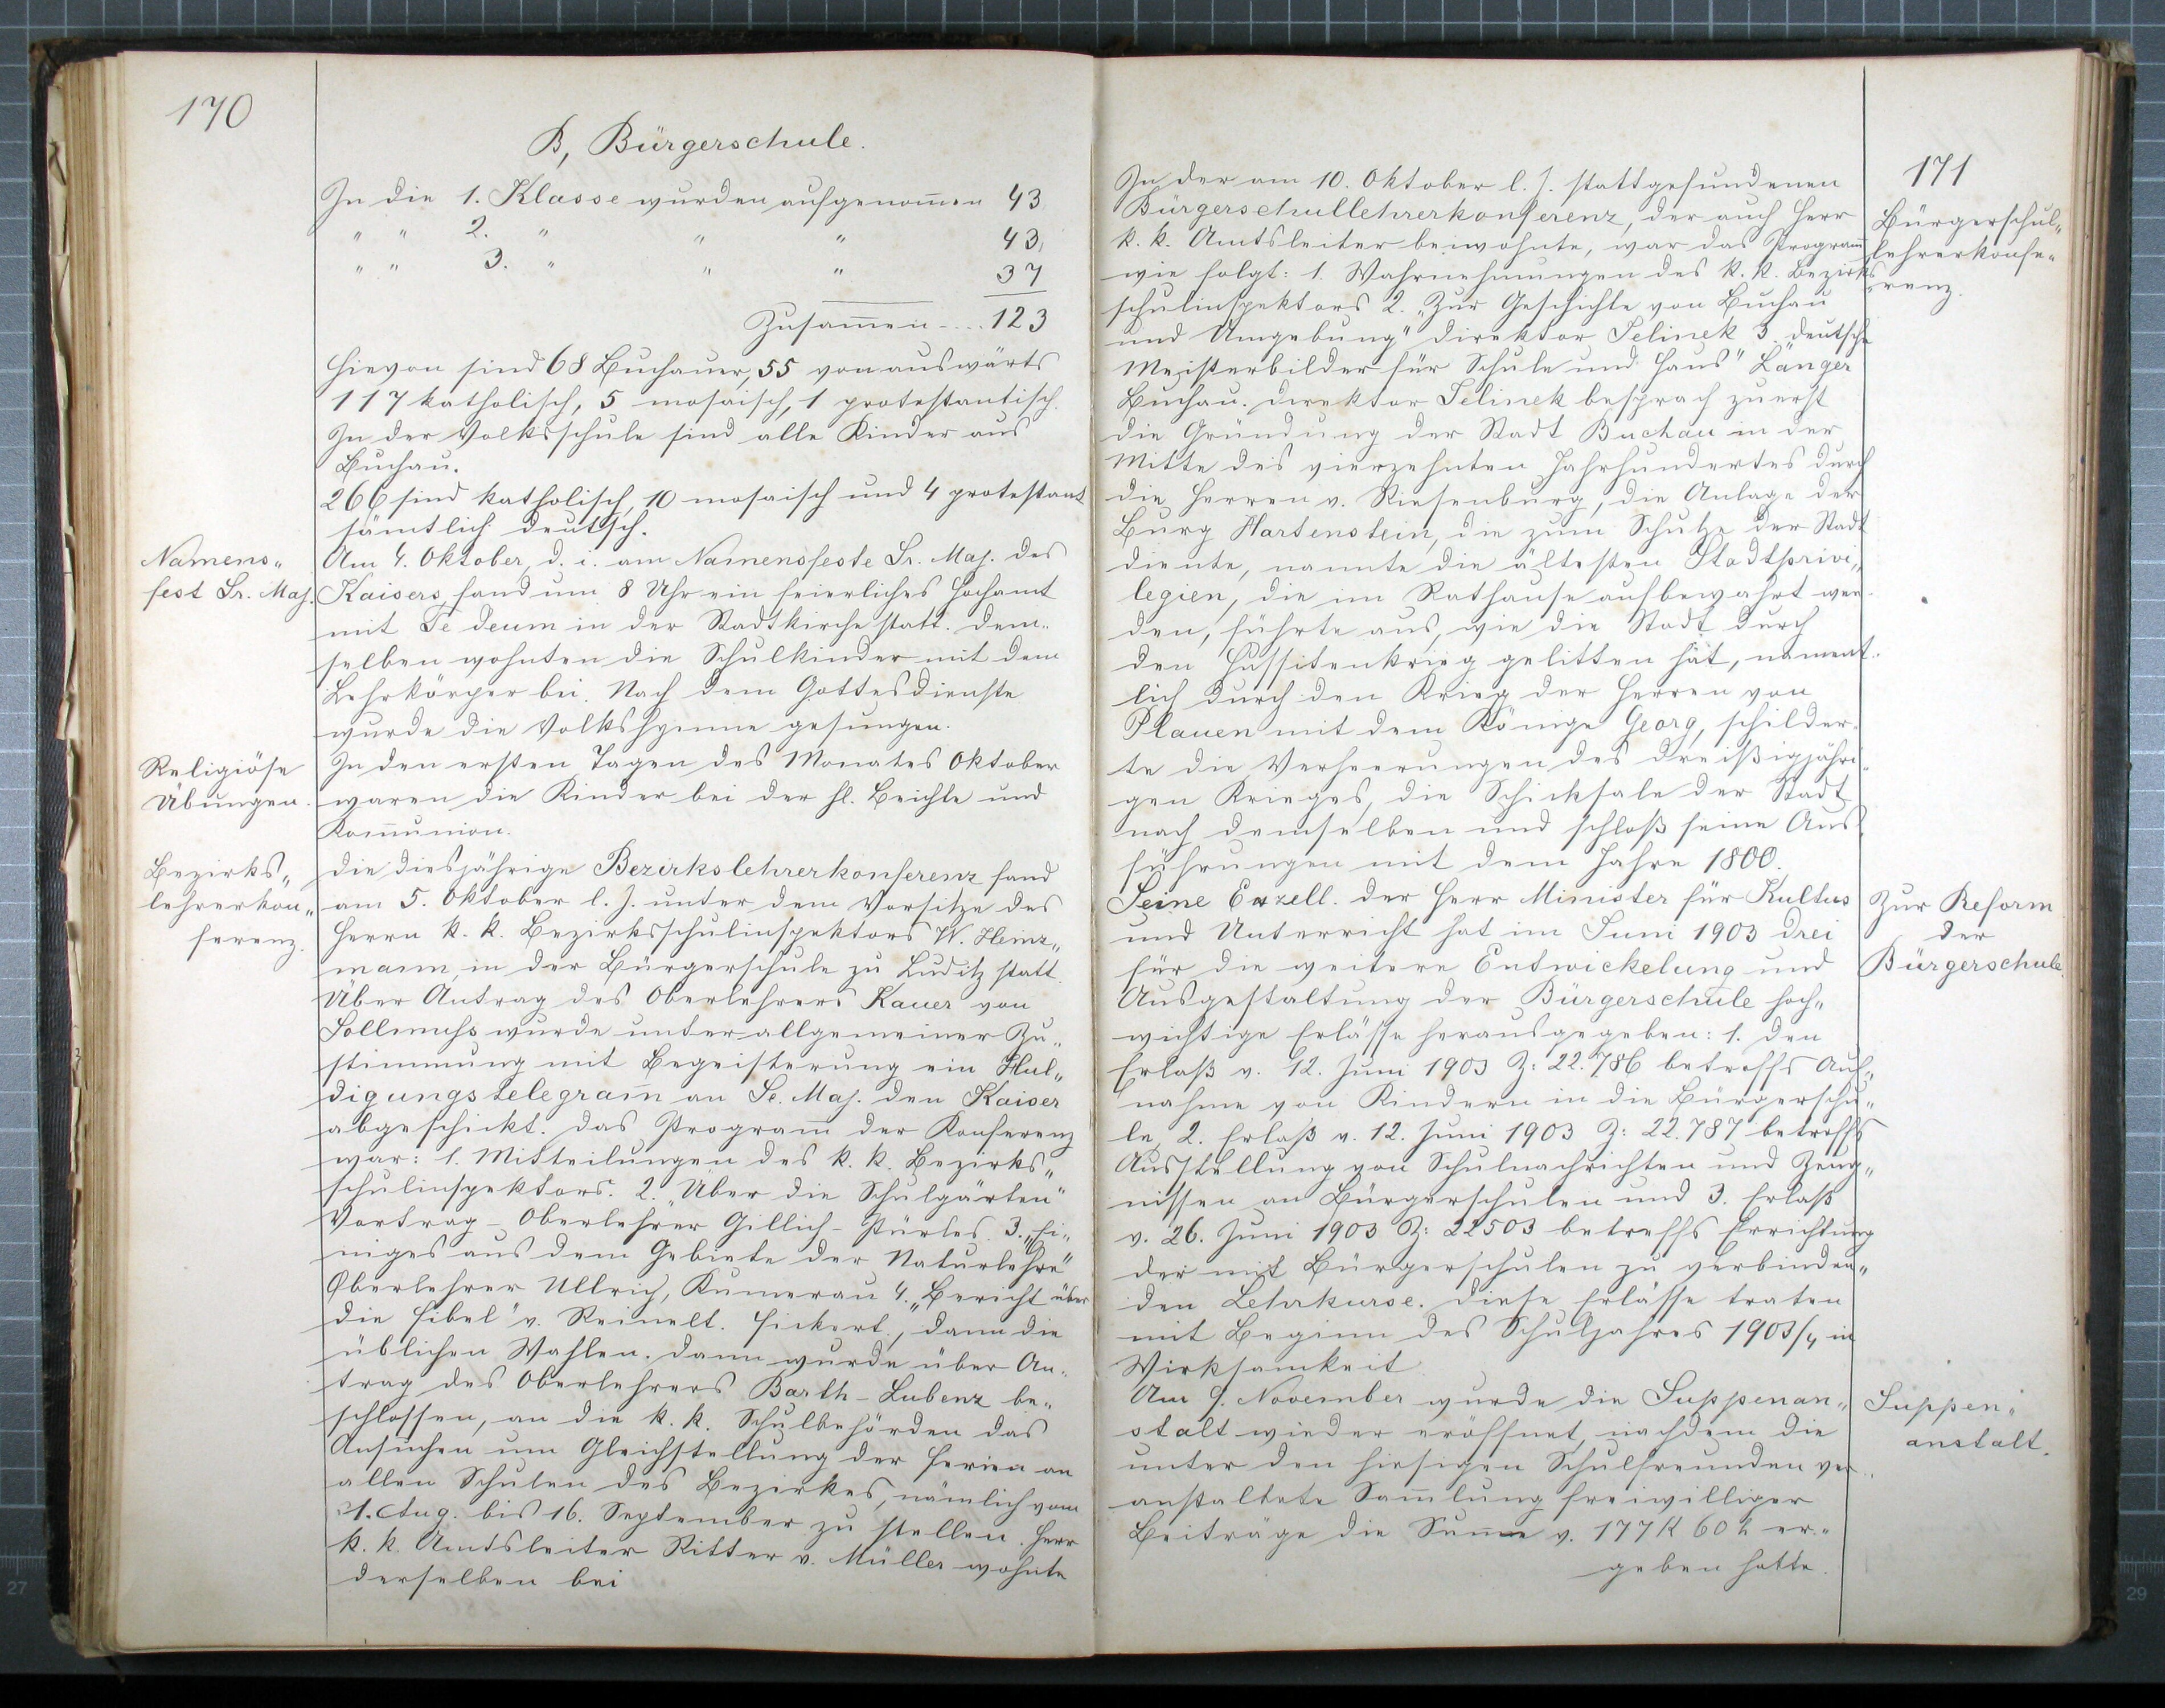 170
B, Bürgerschule.
In die 1. Klasse wurden aufgenom̄en 43
" " 2. " " " 43
" " 3. " " " 37
Zusam̄en .... 123
Hievon sind 68 Buchauer, 55 von auswärts
117 katholisch, 5 mosaisch, 1 protestantisch.
In der Volksschule sind alle Kinder aus
Buchau.
266 sind katholisch, 10 mosaisch und 4 protestant
sämtlich deutsch.
Namens„
fest Sr. Maj.
Am 4. Oktober, d. i. am Namensfeste Sr. Maj. des
Kaisers fand um 8 Uhr ein feierliches Hochamt
mit Te deum in der Stadtkirche statt. Dem„
selben wohnten die Schulkinder mit dem
Lehrkörper bei. Nach dem Gottesdienste
wurde die Volkshymne gesungen.
Religiöse
Übungen.
In den ersten Tagen des Monates Oktober
waren die Kinder bei der hl. Beichte und
Kom̄union.
Bezirks„
lehrerkon„
ferenz.
Die diesjährige Bezirkslehrerkonferenz fand
am 5. Oktober l. J. unter dem Vorsitze des
Herrn k. k. Bezirksschulinspektors W. Heinz„
mann, in der Bürgerschule zu Luditz statt.
Über Antrag des Oberlehrers Kauer von
Sollmuhs wurde unter allgemeiner Zu„
stimmung mit Begeisterung ein Hul„
digungstelegram̄ an Se. Maj. den Kaiser
abgeschickt. Das Program̄ der Konferenz
war: 1. Mitteilungen des k. k. Bezirks„
schulinspektors. 2. „Über die Schulgärten"
Vortrag - Oberlehrer Gillich - Pürles. 3. „Ei„
niges aus dem Gebiete der Naturlehre"
Oberlehrer Ullrich, Kumerau 4. „Bericht über
die Fibel" v. Reinelt. Fickert, dann die
üblichen Wahlen. Dann wurde über An„
trag des Oberlehrers Barth - Lubenz be„
schlossen, an die k. k. Schulbehörden das
Ansuchen um Gleichstellung der Ferien an
allen Schulen des Bezirkes, nämlich vom
1. Aug. bis 16. September zu stellen. Herr
k. k. Amtsleiter Ritter v. Müller wohnte
derselben bei
171
In der am 10. Oktober l. J. stattgefundenen
Bürgerschullehrerkonferenz, der auch Herr
k. k. Amtsleiter beiwohnte, war das Program̄
wie folgt: 1. Wahrnehmungen des k. k. Bezirks
schulinspektors 2. „Zur Geschichte von Buchau
und Umgebung" Direktor Jelinek 3. Deutsche
Meisterbilder für Schule und Haus" Länger
Buchau. Direktor Jelinek besprach zuerst
die Gründung der Stadt Buchau in der
Mitte des vierzehnten Jahrhundertes durch
die Herren v. Riesenburg, die Anlage der
Burg Hartenstein, die zum Schutze der Stadt
diente, nannte die ältesten Stadtprivi„
legien, die im Rathause aufbewahrt wer„
den, führte aus, wie die Stadt durch
den Hussitenkrieg gelitten hat, nament„
lich durch den Krieg der Herren von
Plauen mit dem Könige Georg, schilder„
te die Verheerungen des dreißigjähri„
gen Krieges, die Schicksale der Stadt
nach demselben und schloß seine Aus„
führungen mit dem Jahre 1800.
Bürgerschul„
lehrerkonfe„
renz.
Seine Exzell. der Herr Minister für Kultus
und Unterricht hat im Juni 1903 drei
für die weitere Entwickelung und
Ausgestaltung der Bürgerschule hoch„
wichtige Erlässe herausgegeben: 1. Den
Erlaß v. 12. Juni 1903 Z: 22.786 betreffs Auf„
nahme von Kindern in die Bürgerschu„
le, 2. Erlaß v. 12. Juni 1903 Z: 22.787 betreffs
Ausstellung von Schulnachrichten und Zeug„
nissen an Bürgerschulen und 3. Erlass
v. 26. Juni 1903 Z: 22503 betreffs Errichtung
der mit Bürgerschulen zu verbinden„
den Lehrkurse. Diese Erlässe traten
mit Beginn des Schuljahres 1903/4 in
Wirksamkeit
Zur Reform
der
Bürgerschule.
Am 9. November wurde die Suppenan„
stalt wieder eröffnet, nachdem die
unter den hiesigen Schulfreunden ver„
anstaltete Sam̄lung freiwilliger
Beiträge die Sum̄e v. 177 K 60 h er„
geben hatte.
Suppen„
anstalt.
27
29